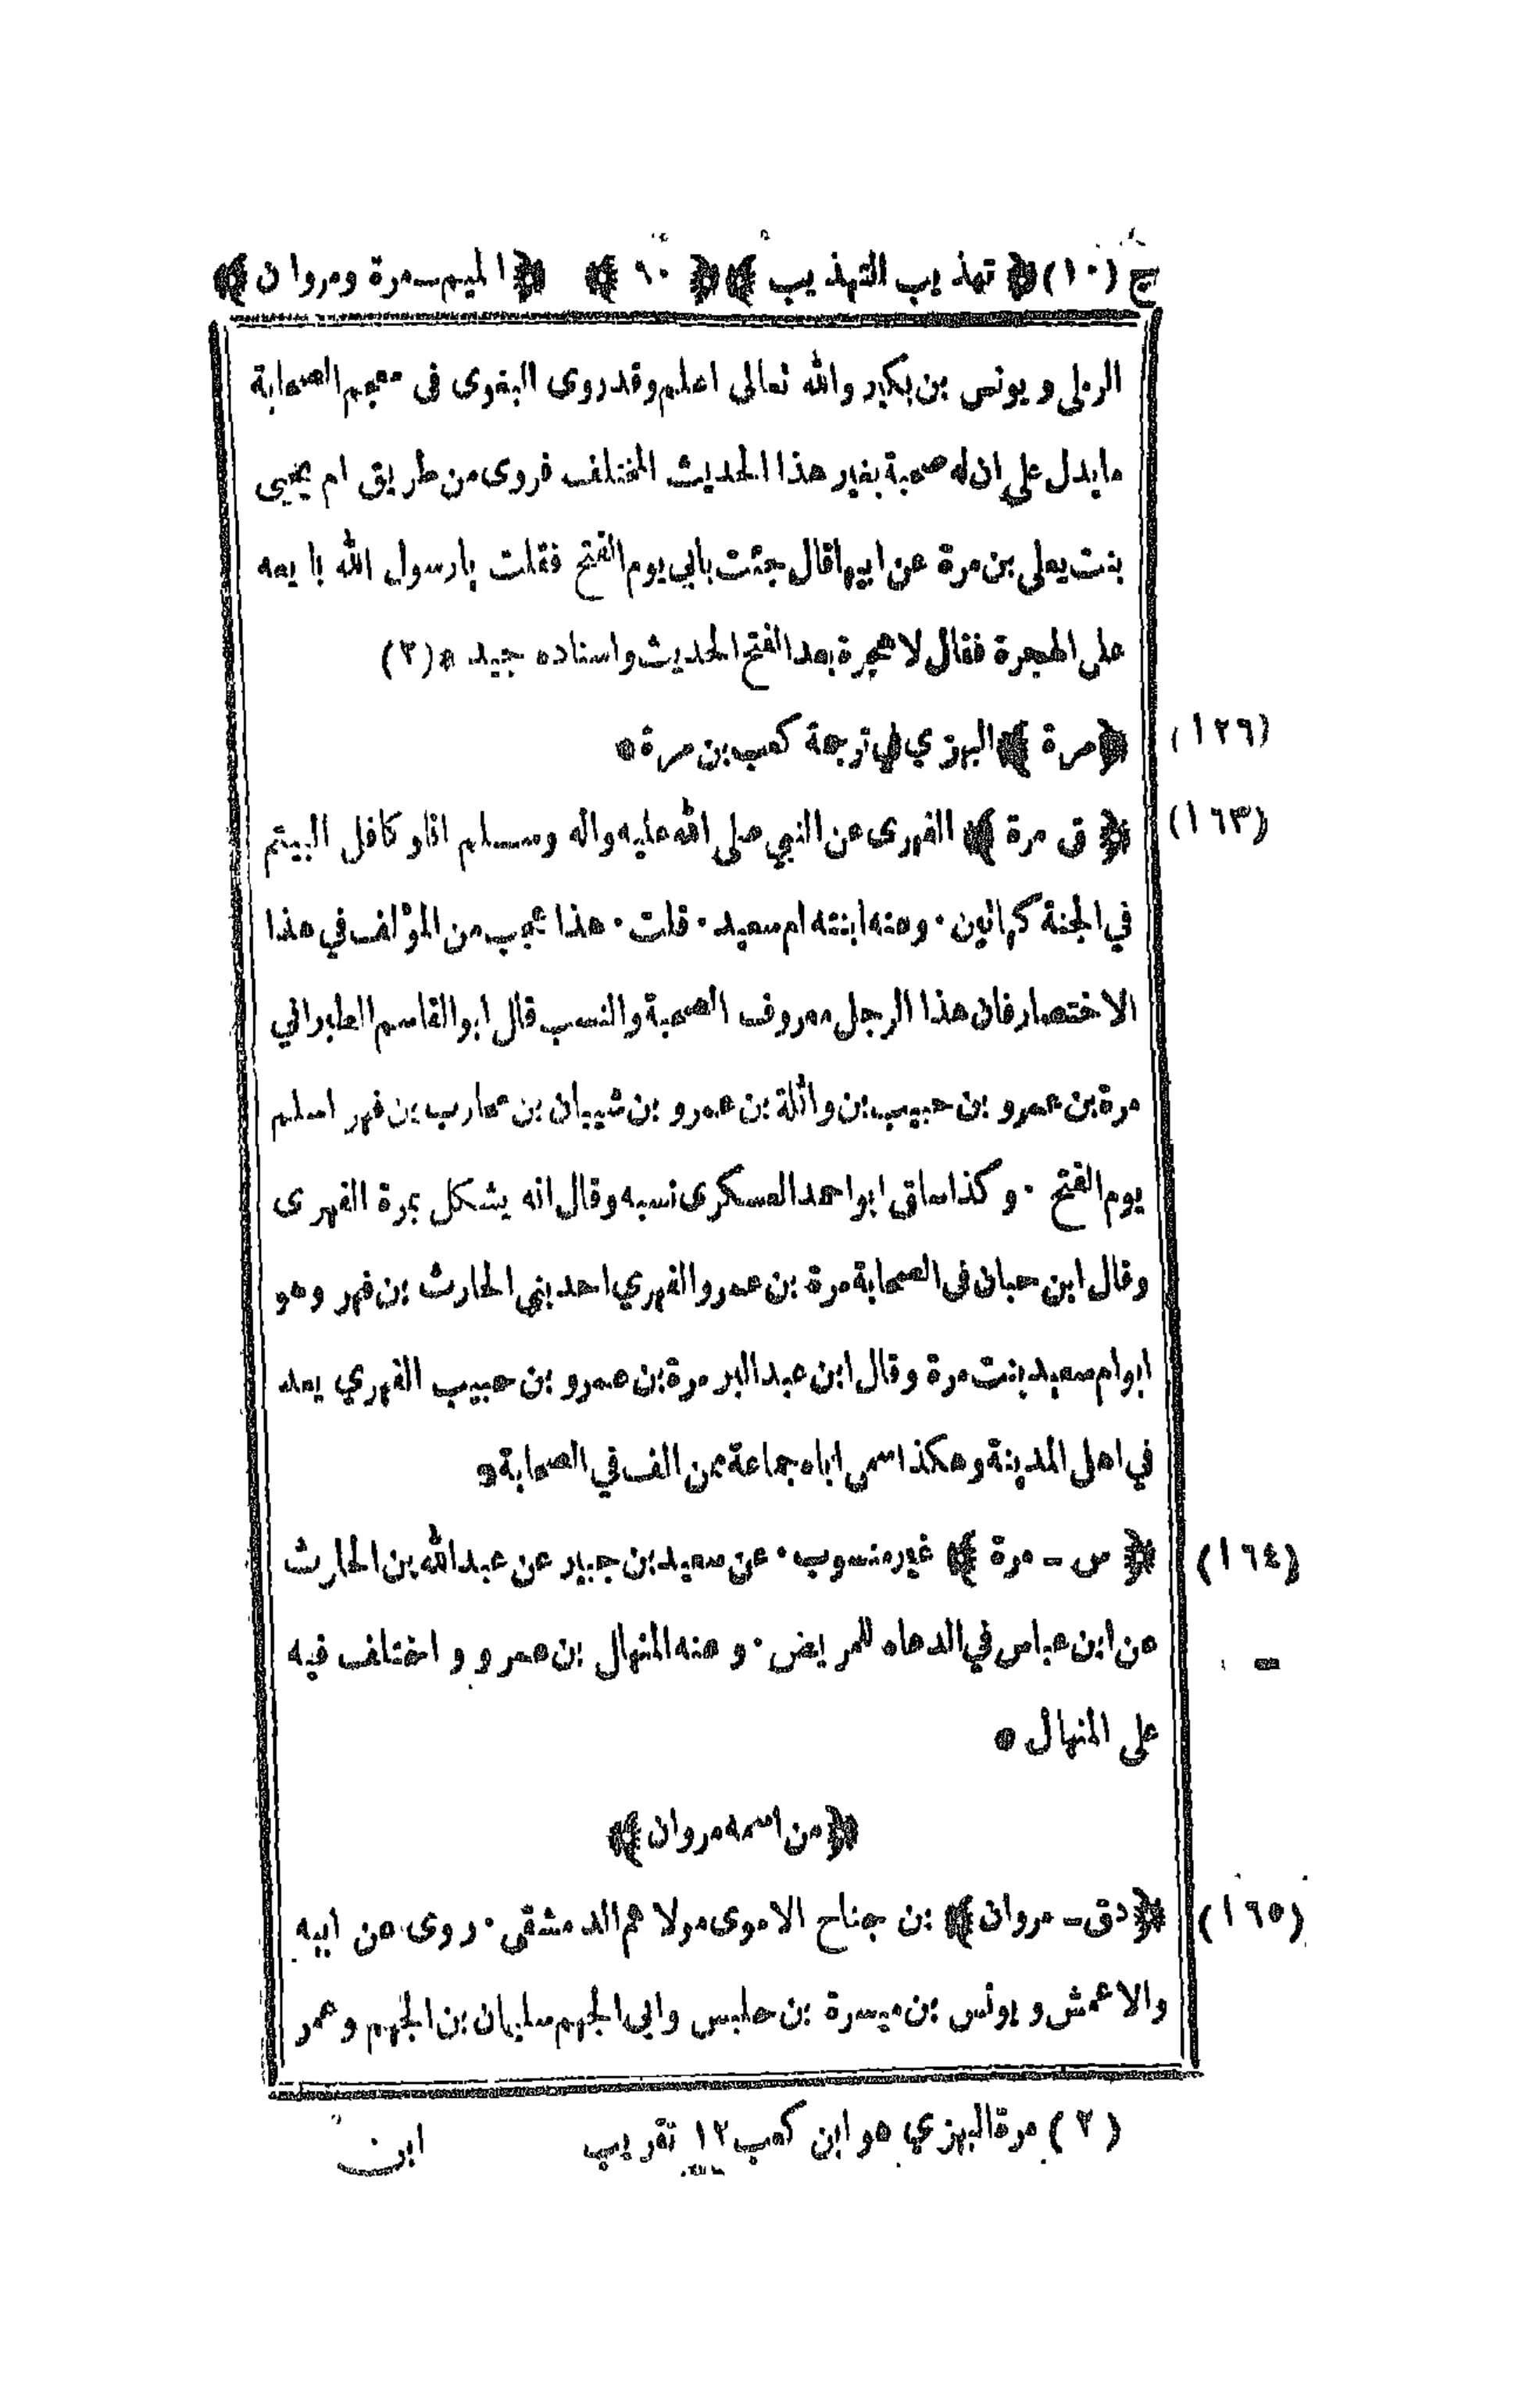 ج (١٠) ﴿ تهذيب التهذيب ﴾ ﴿ ٩٠ ﴾ ﴿ الميم ـ مرة ومروان ﴾
الرملى ويونس بن بكير والله تعالى اعلم وقد روى البغوى فى معجم الصحابة
مايدل على ان له صحبة بغير هذا الحديث المختلف فروى من طريق ام يحيى
بنت يعلى بن مرة عن ابيها قال جئت بابي يوم الفتح فقلت يارسول الله بايعه
على الهجرة فقال لا هجرة بعد الفتح الحديث واسناده جيد * (٢)
(١٢٦) ﴿ مرة ﴾ البهزي في ترجمة كعب بن مرة *
(١٦٣) ﴿ ق مرة ﴾ الفهرى عن النبي صلى الله عليه واله وسلم انا وكافل اليتيم
في الجنة كهاتين · وعنه ابنته ام سعيد · قلت · هذا عجيب من المؤلف في هذا
الاختصار فان هذا الرجل معروف الصحبة والنسب قال ابو القاسم الطبراني
مرة بن عمرو بن حبيب بن واثلة بن عمرو بن شيبان بن محارب بن فهر اسلم
يوم الفتح · وكذا ساق ابو احمد العسكرى نسبه وقال انه يشكل بمرة الفهرى
وقال ابن حبان فى الصحابة مرة بن عمرو الفهري احد بني الحارث بن فهر وهو
ابو ام سعيد بنت مرة وقال ابن عبد البر مرة بن عمرو بن حبيب الفهري يعد
في اهل المدينة وهكذا سمى اباه جماعة ممن الف في الصحابة *
(١٦٤) ﴿ س ـ مرة ﴾ غير منسوب · عن سعيد بن جبير عن عبد الله بن الحارث
عن ابن عباس في الدعاء للمريض · وعنه المنهال بن عمرو و اختلف فيه
على المنهال *
﴿ من اسمه مروان ﴾
(١٦٥) ﴿ دق ـ مروان ﴾ بن جناح الاموى مولاهم الدمشقى · روى عن ابيه
والاعمش و يونس بن ميسرة بن حلبس وابى الجهم سليمان بن الجهم وعمر
(٢) مرة البهزي هو ابن كعب ١٢ تقريب
ابن